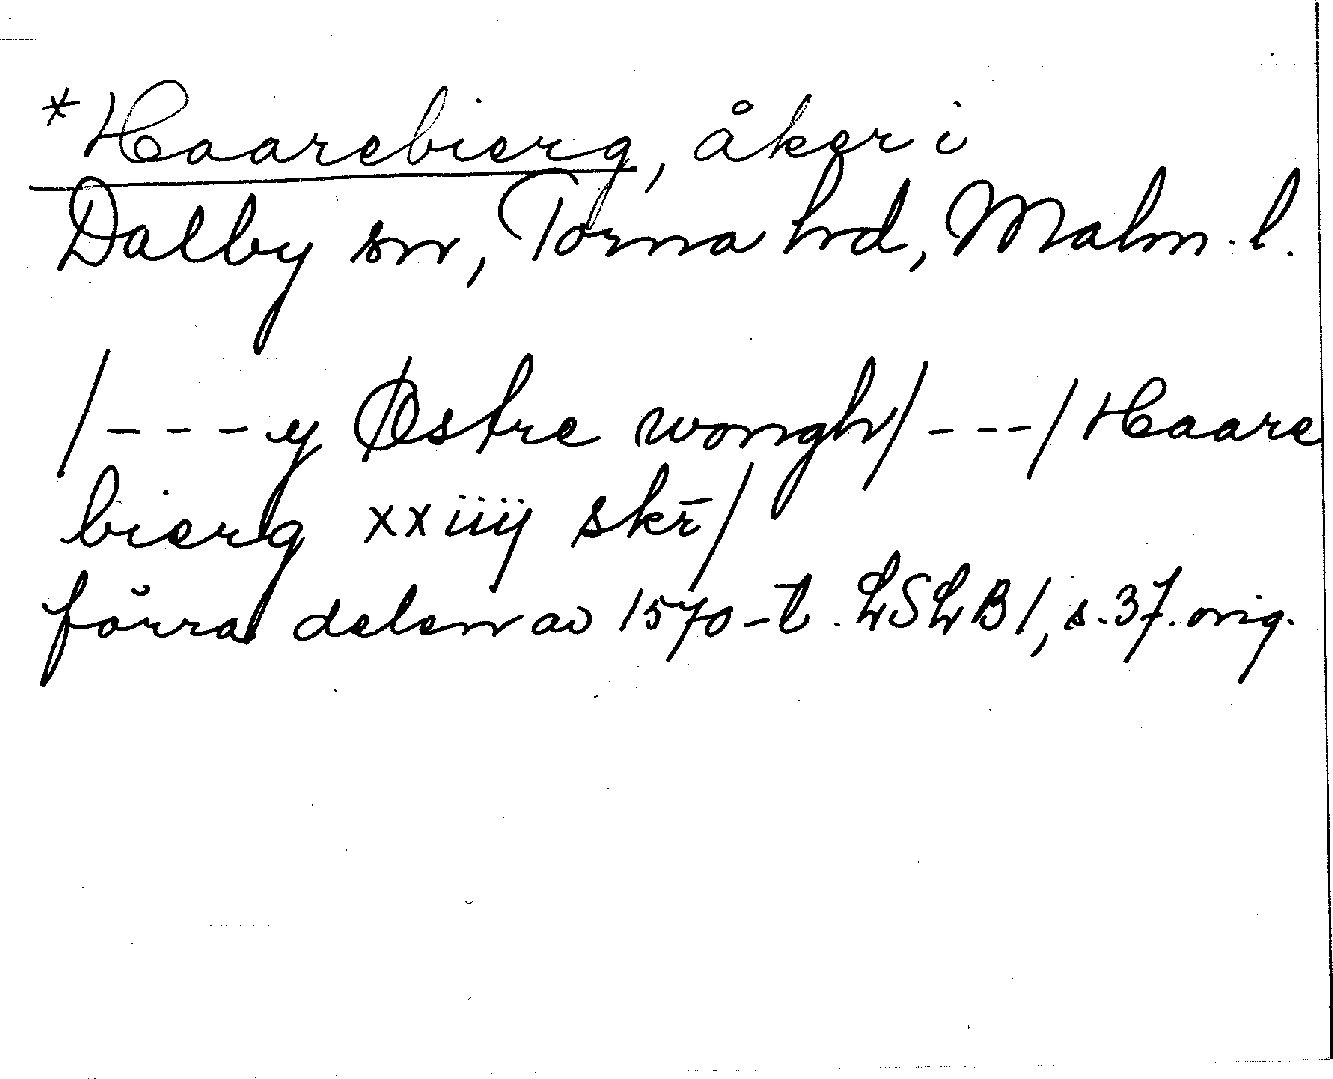 *Haarebierg, åker i
Dalby sn, Torna hrd, Malm. l.
/---y Østre wongh/---/Haare
bierg xxiiij skr̄/
förra delen av 1570-t. LSLB1, s.37. orig.